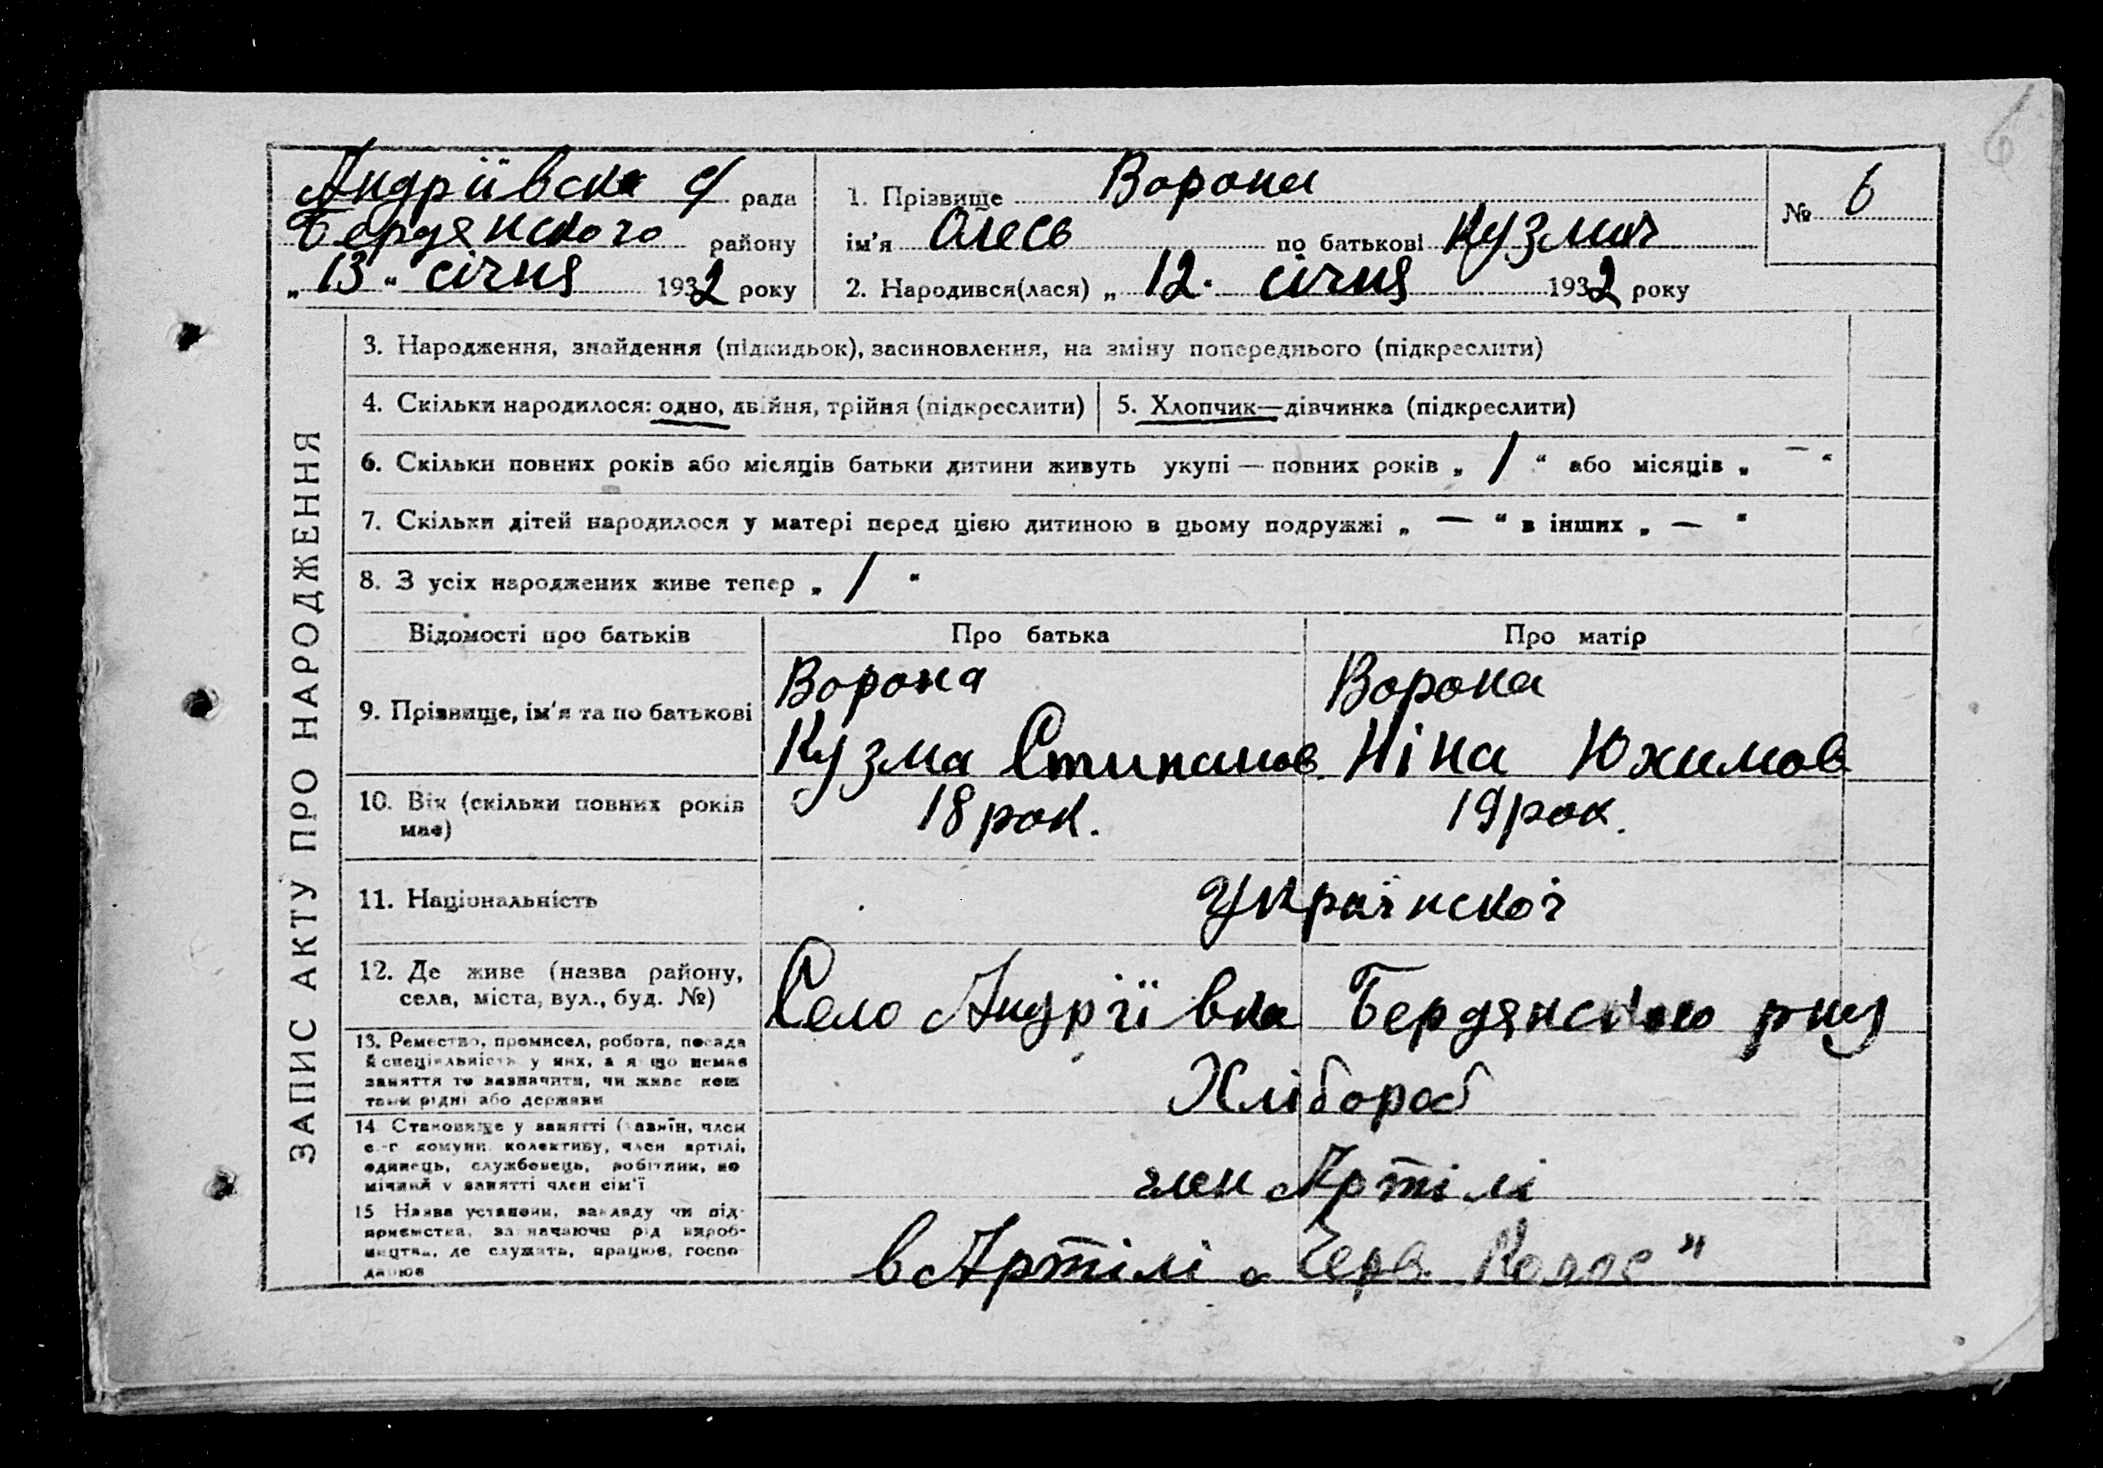 6
Андріївська с/ рада
Бердянского району
„ 13 “ січня 1932 року
1. Прізвище Ворона
ім’я Олесь по батькові Кузмич
2. Народився(лася) „ 12. січня 1932 року
№ 6
ЗАПИС АКТУ ПРО НАРОДЖЕННЯ
3. Народження, знайдення (підкидьок), засиновлення, на зміну попереднього (підкреслити)
4. Скільки народилося: одно, двійня, трійня (підкреслити)
5. Хлопчик—дівчинка (підкреслити)
6. Скільки повних років або місяців батьки дитини живуть укупі — повних років „ 1 “ або місяців „ — “
7. Скільки дітей народилося у матері перед цією дитиною в цьому подружжі „ — “ в інших „ — “
8. З усіх народжених живе тепер „ 1 “
Відомості про батьків
Про батька
Про матір
9. Прізвище, ім’я та по батькові
Ворона
Кузма Стипанов.
Ворона
Ніна Юхимов
10. Вік (скільки повних років
має)
18 рок.
19 рок.
11. Національність
Українскої
12. Де живе (назва району,
села, міста, вул., буд. №)
Село Андріївка Бердянского рну
13. Ремество, промисел, робота, посада
й спеціяльність у них, а якщо немає
заняття то зазначити, чи живе кош
тами рідні або держави
Хлібороб
14. Становище у занятті (хазяїн, член
с.-г комуни, колективу, член артілі,
одинець, службовець, робітник, по
мічний у занятті член сім’ї
член Артілі
15 Назва установи, закладу чи під-
приємства, зазначаючи рід вироб-
ництва, де служить, працює, госпо-
дарює
в Артілі „Черв. Колос”